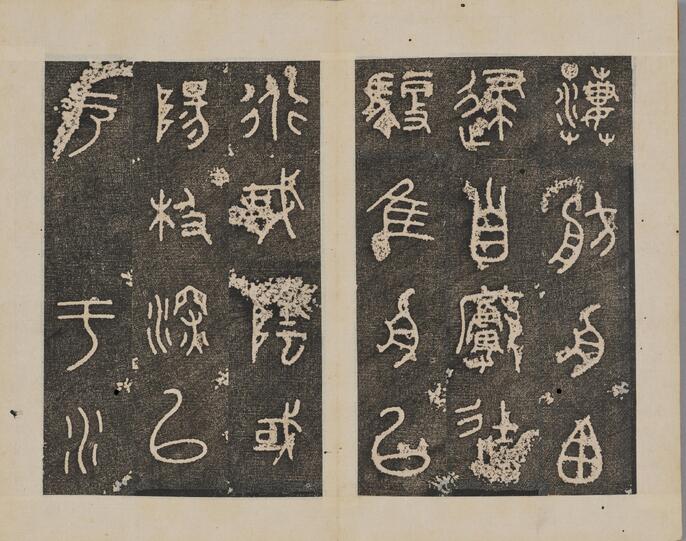 淒舫舟囪
逮自廓徒
馭隹舟以
衍或陰或
陽极深以
戶于水